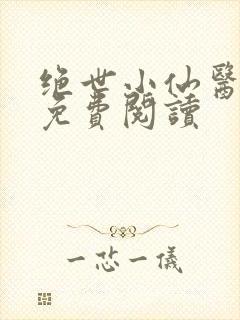 绝世小仙醫
免費閱讀
一芯一儀